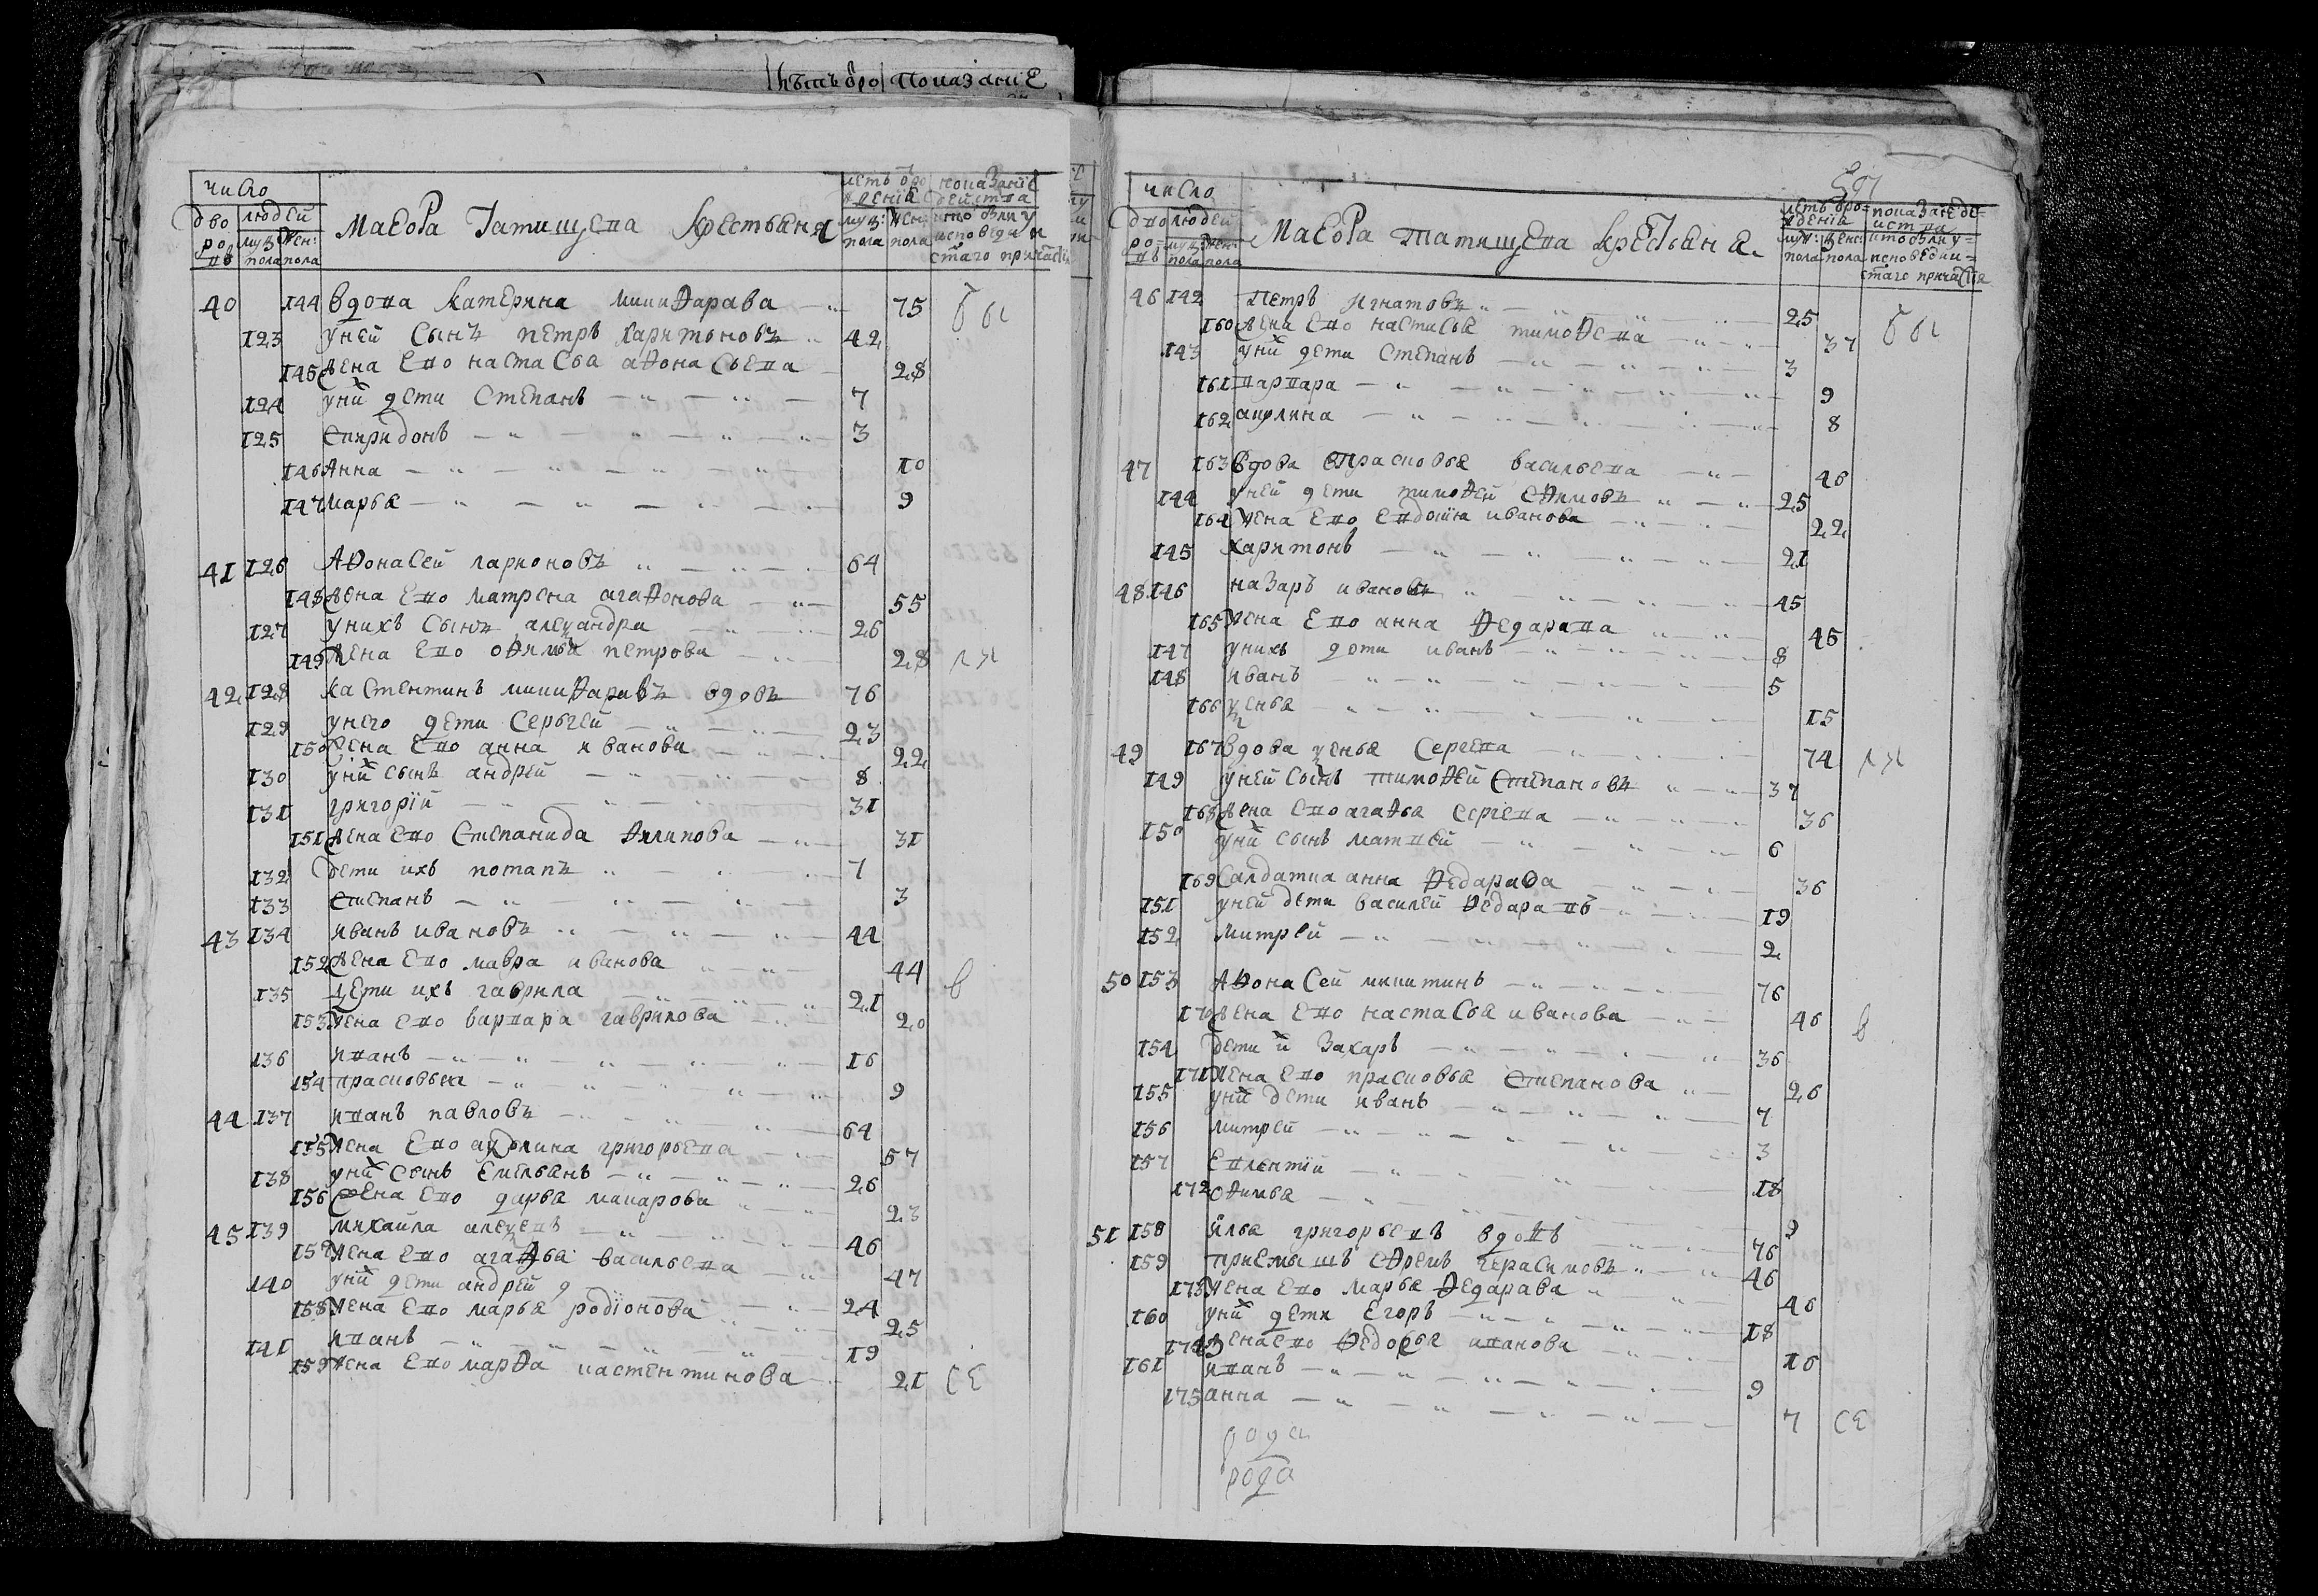 лѣтъ ѿро показаниЕ
число
дво людей
ро муз: жен:
въ пола пола
маеора Татищева крестьяня
летъ ѿро показаніе
ждения действа
муз: жен: кто былъ у
пола пола исповеди и
стаго причастія
40 144 вдова катерина никифарава 75 бы
123 уней сынъ петръ харитоновъ 42
145 жена ево настасья афонасьева 28
124 у ни дети степанъ 7
125 спиридонъ 3
146 Анна 10
147 марья 9
41 126 Афонасей ларионовъ 64
148 жена ево матрена агафонова 55
127 унихъ сынъ алеѯандра 26
149 жена ево офимья петрова 28 ли
42 128 кастентинъ никифаравъ вдовъ 76
129 унего дети сергей 23
150 жена ево анна иванова 22
130 уни сынъ андрей 8
131 григорій 31
151 жена ево степанида филипова 31
132 дети ихъ потапъ 7
133 степанъ 3
43 134 иванъ ивановъ 44
152 жена ево мавра иванова 44 в
135 дети ихъ гаврила 21
153 жена ево варвара гаврилова 20
136 иванъ 16
154 прасковья 9
44 137 иванъ павловъ 64
155 жена ево акулина григорьева 57
138 уни сынъ емельянъ 26
156 жена ево дарья макарова 23
45 139 михайла алеѯевъ 46
157 жена ево агафья васильева 47
140 уни дети андрей 24
158 жена ево марья родіонова 25
141 иванъ 19
159 жена ево марфа кастентинова 21 се
число
дво людей
ро муж: жен:
въ пола пола
маеора татищева крестьяне
летъ ѿро показание де
ждения иства
муж: женс кто былъ у
пола пола исповеди и
стаго причастия
46 142 петръ игнатовъ 25 бы
160 жена ево настасья тимофева 37
143 уни дети степанъ 3
161 варвара 9
162 акулина 8
47 163 вдова прасковья васильева 46
144 уней дети тимофей ефимовъ 25
164 жена ево евдокия иванова 22
145 харитонъ 21
48 146 назаръ ивановъ 45
165 жена ево анна федарава 45
147 унихъ дети иванъ 8
148 иванъ 5
166 ѯенья 15
49 167 вдова ѯенья сергева 74 ли
149 уней сынъ тимофей степановъ 37
168 жена ево агафья сергева 36
150 уни сынъ матвей 6
169 салдатка анна федарава 36
151 уней дети василей федаравъ 19
152 митрей 2
50 153 Афонасей никитинъ 76
170 жена ево настасья иванова 46 в
154 дети и захаръ 36
171 жена ево прасковья степанова 26
155 уни дети иванъ 7
156 митрей 3
157 евлентий 18
172 офимья 9
51 158 илья григорьевъ вдовъ 76
159 приемышъ ефремъ герасимовъ 46
173 жена ево марья федарава 46
160 уни дети егоръ 18
174 жена ево федосья иванова 16
161 иванъ 9
175 анна 7 се
рода
рода